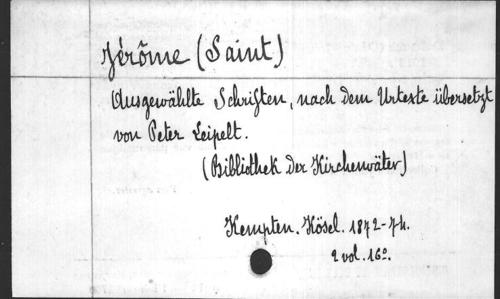 Jérôme (Saint)
Ausgewählte Schriften, nach dem Urteste übersetzt
von Peter Leipelt.
(Bibliothek der Kirchenväter)
Kempten. Kösel. 1872-74.
2 vol. 16º.